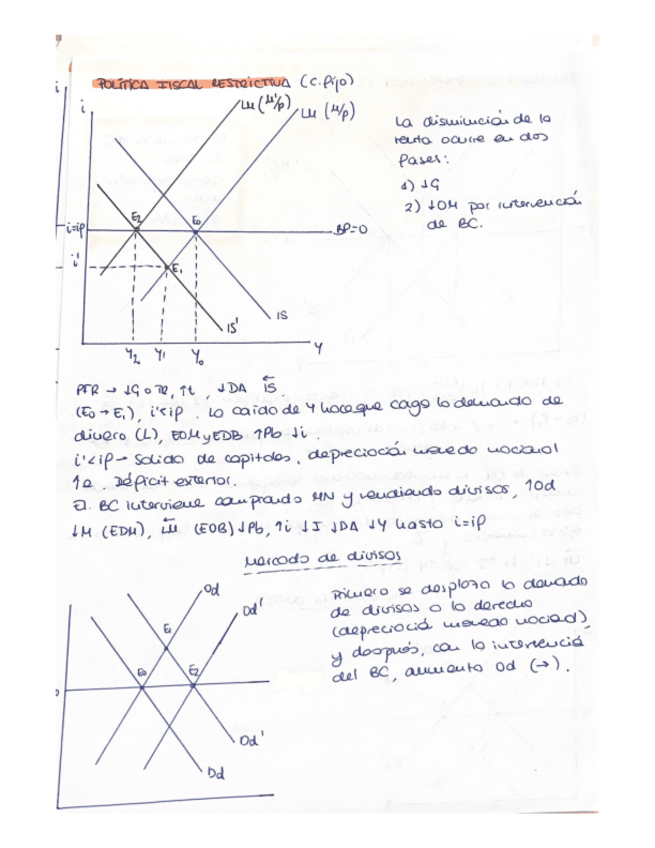 POLÍTICA FISCAL RESTRICTIVA (C. fijo)
i
LM (M'/p)
LM (M/p)
E2
E0
i=ip
BP=0
i'
E1
IS
IS'
Y2 Y1 Y0
Y
La disminución de la
renta ocurre en dos
fases:
1) ↓G
2) ↓OM por intervención
de BC.
PFR → ↓G o TR, ↑t, ↓DA IS
(E0 → E1), i'<ip. La caída de Y hace que caiga la demanda de
dinero (L), EOM y EDB ↑Pb ↓i.
i'<ip → Salida de capitales, depreciación moneda nacional
↑e. Déficit exterior.
El BC interviene comprando MN y vendiendo divisas, ↑Od
↓M (EDM), LM (EOB) ↓Pb, ↑i ↓I ↓DA ↓Y hasta i=ip
Mercado de divisas
Od
Od'
E1
E0
E2
Dd'
Dd
Primero se desplaza la demanda
de divisas a la derecha
(depreciació moneda nacional),
y después, con la intervenció
del BC, aumenta Od (→).